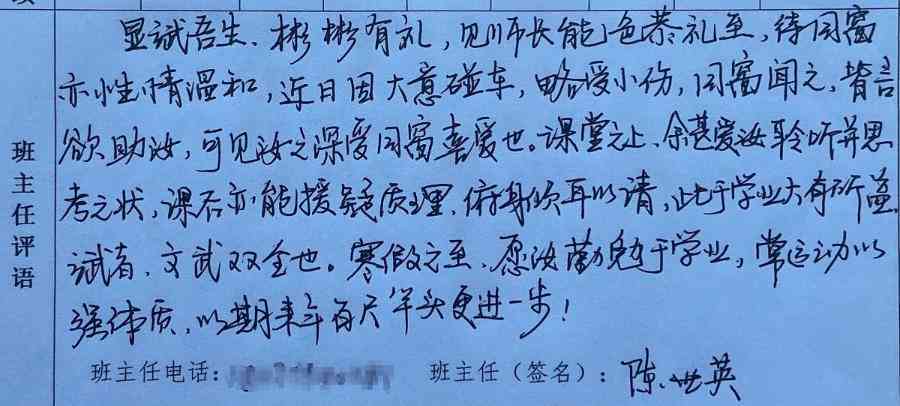 显斌吾生、彬彬有礼，见师长能色恭礼至，待同窗
亦性情温和，近日因大意碰车，略受小伤，同窗闻之，皆言
欲助汝，可见汝之深受同窗喜爱也。课堂之上、余甚爱汝聆听并思
考之状，课后亦能援疑质理、俯身倾耳以请，此于学业大有所益。
斌者、文武双全也。寒假之至、愿汝勤勉于学业，常运动以
强体质，以期来年百尺竿头更进一步！
班主任评语
班主任电话： 班主任（签名）：陈世英